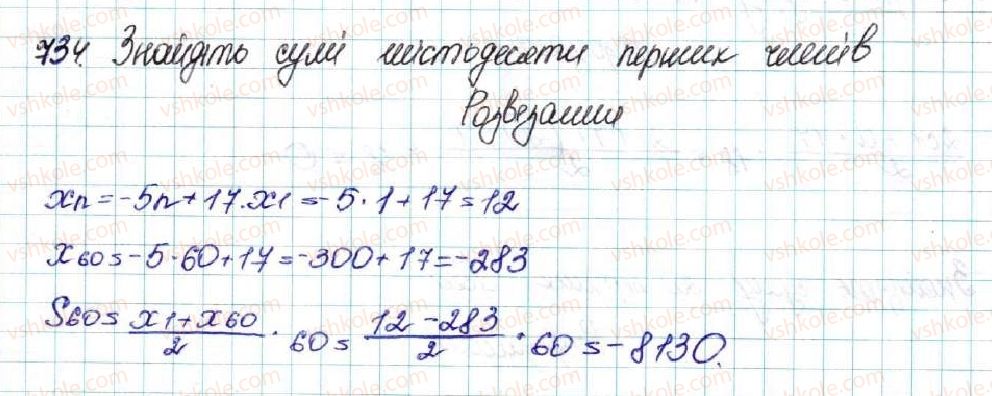 734. Знайдіть суму шістдесяти перших членів
Розвезання
xn = -5n + 17. x1 = -5 · 1 + 17 = 12
x60 = -5 · 60 + 17 = -300 + 17 = -283
S60 = (x1 + x60)/2 · 60 = (12 - 283)/2 · 60 = -8130.